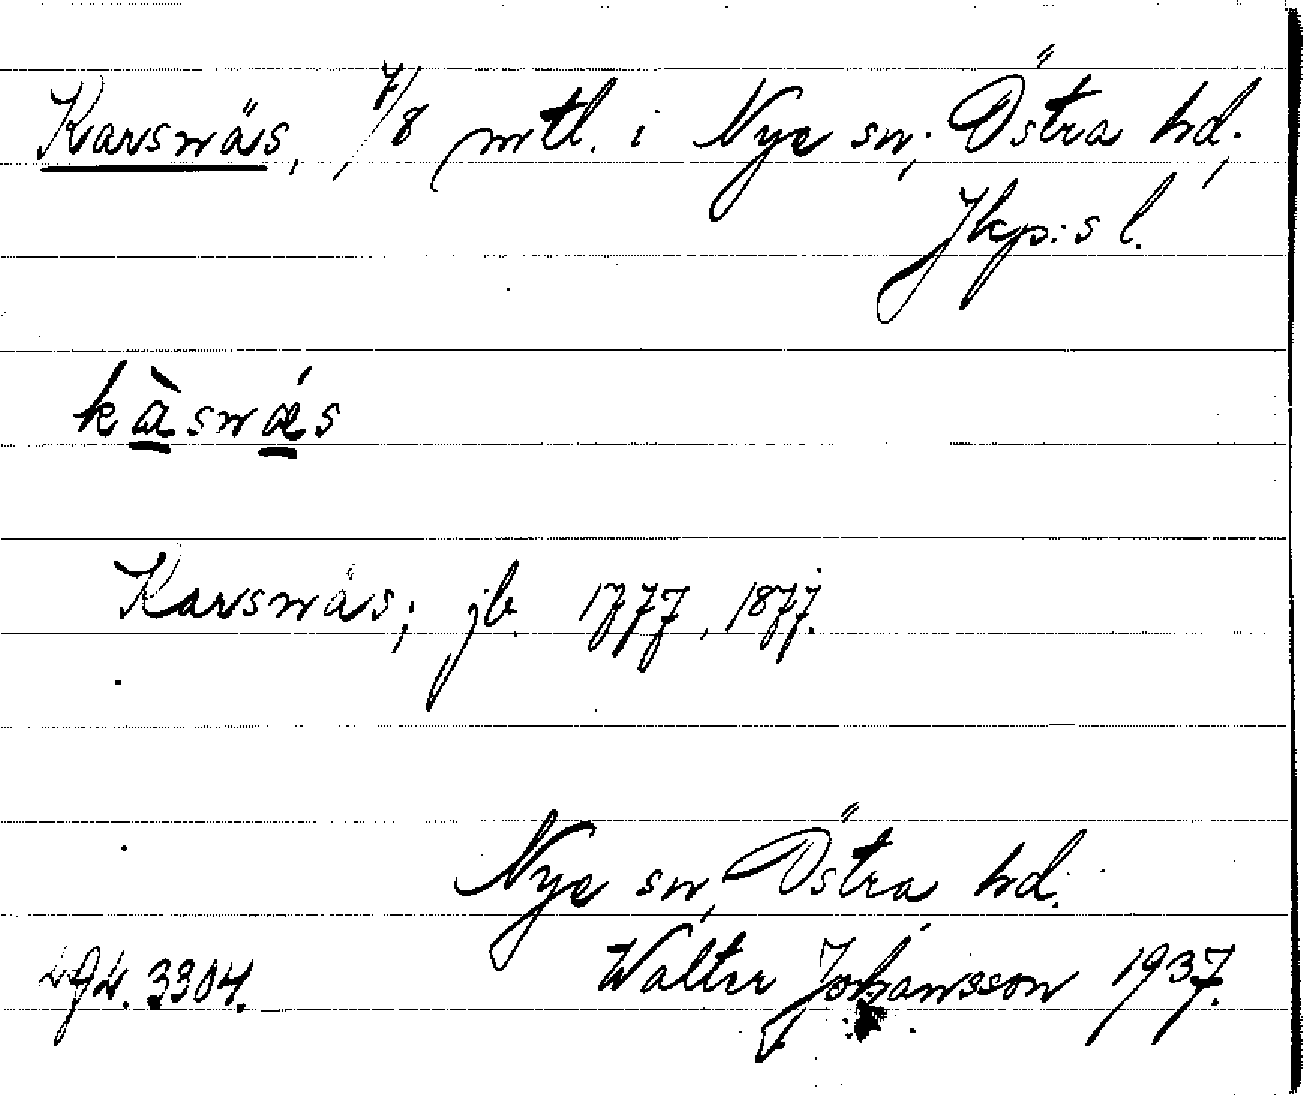 Karsnäs, 7/8 mtl. i Nye sn, Östra hd,
Jkp:s l.
kàsnǽs
Karsnäs; jb. 1777, 1877.
Nye sn, Östra hd.
Walter Johansson 1937.
3304.